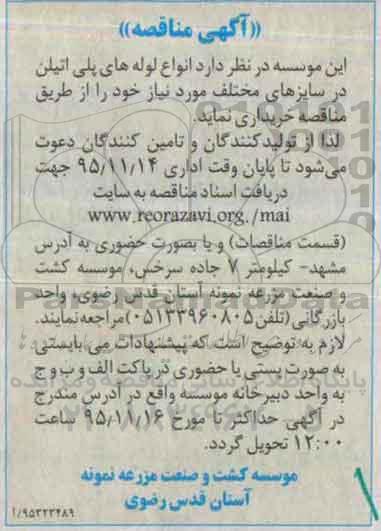 «آگهی مناقصه»
این موسسه در نظر دارد انواع لوله های پلی اتیلن
در سایزهای مختلف مورد نیاز خود را از طریق
مناقصه خریداری نماید.
لذا از تولیدکنندگان و تامین کنندگان دعوت
می‌شود تا پایان وقت اداری ۹۵/۱۱/۱۴ جهت
دریافت اسناد مناقصه به سایت
www.reorazavi.org./mai
(قسمت مناقصات) و یا بصورت حضوری به آدرس
مشهد- کیلومتر ۷ جاده سرخس، موسسه کشت
و صنعت مزرعه نمونه آستان قدس رضوی، واحد
بازرگانی (تلفن۰۵۱۳۳۹۶۰۸۰۵) مراجعه نمایند.
لازم به توضیح است که پیشنهادات می بایستی
به صورت پستی یا حضوری در پاکت الف و ب و ج
به واحد دبیرخانه موسسه واقع در آدرس مندرج
در آگهی حداکثر تا مورخ ۹۵/۱۱/۱۶ ساعت
۱۲:۰۰ تحویل گردد.
موسسه کشت و صنعت مزرعه نمونه
آستان قدس رضوی
۱/۹۵۳۲۳۴۸۹